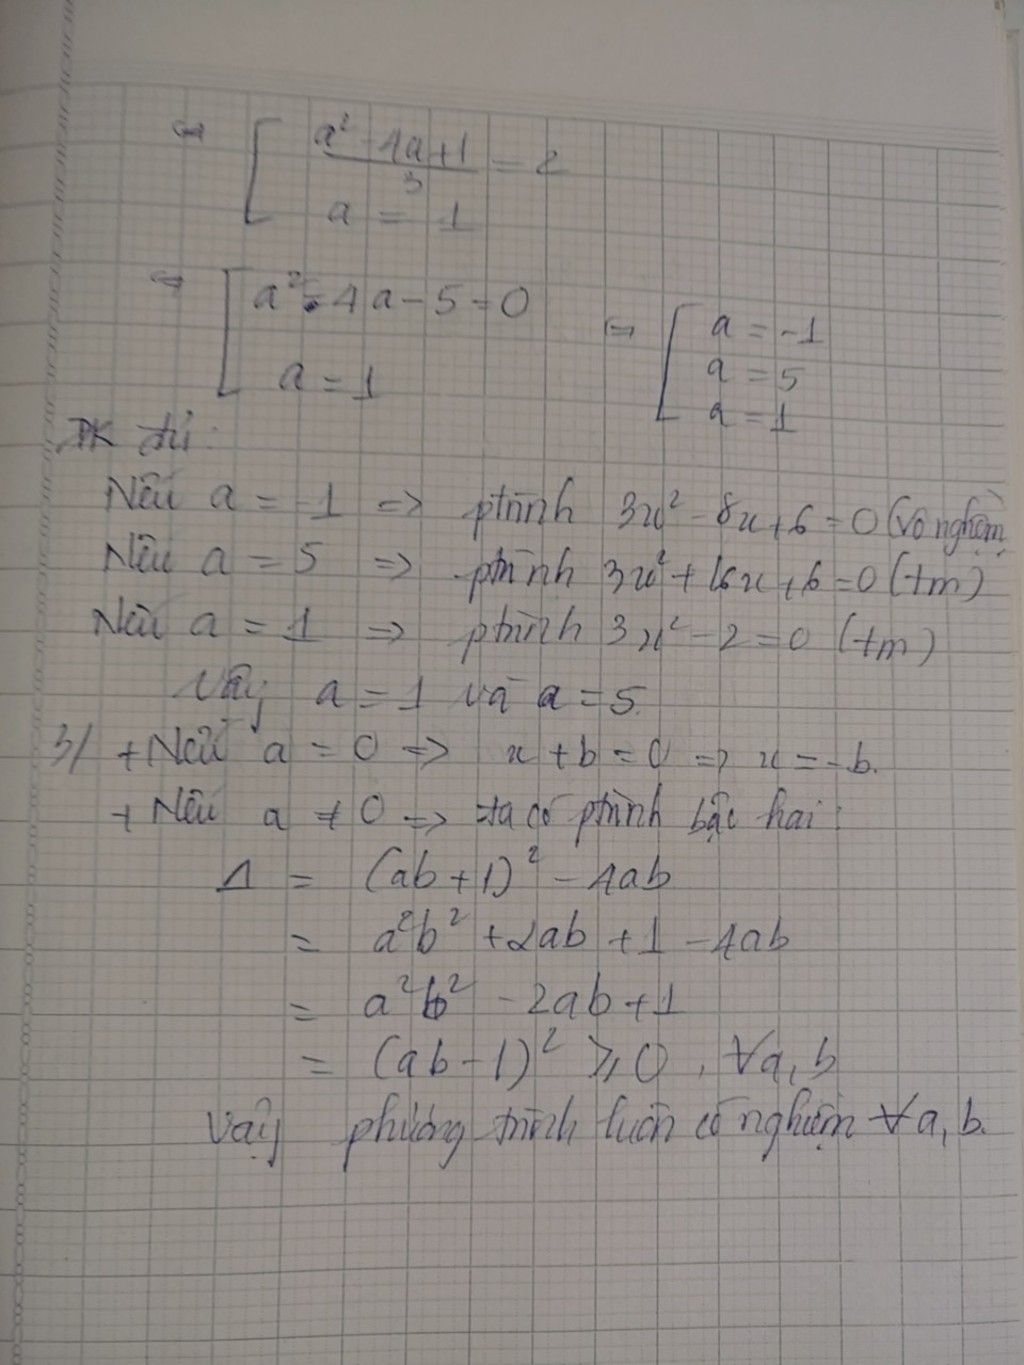 ⇔ [ (a² - 4a + 1)/3 = 2
a = 1
⇔ [ a² - 4a - 5 = 0
a = 1
⇔ [ a = -1
a = 5
a = 1
ĐK đủ:
Nếu a = -1 => ptrình 3x² - 8x + 6 = 0 (vô nghiệm
Nếu a = 5 => ptrình 3x² + 16x + 6 = 0 (tm)
Nếu a = 1 => ptrình 3x² - 2 = 0 (tm)
Vậy a = 1 và a = 5.
3/ + Nếu a = 0 => x + b = 0 => x = -b.
+ Nếu a ≠ 0 => ta có ptrình bậc hai:
Δ = (ab + 1)² - 4ab
= a²b² + 2ab + 1 - 4ab
= a²b² - 2ab + 1
= (ab - 1)² ≥ 0, ∀a, b
Vậy phương trình luôn có nghiệm ∀a, b.